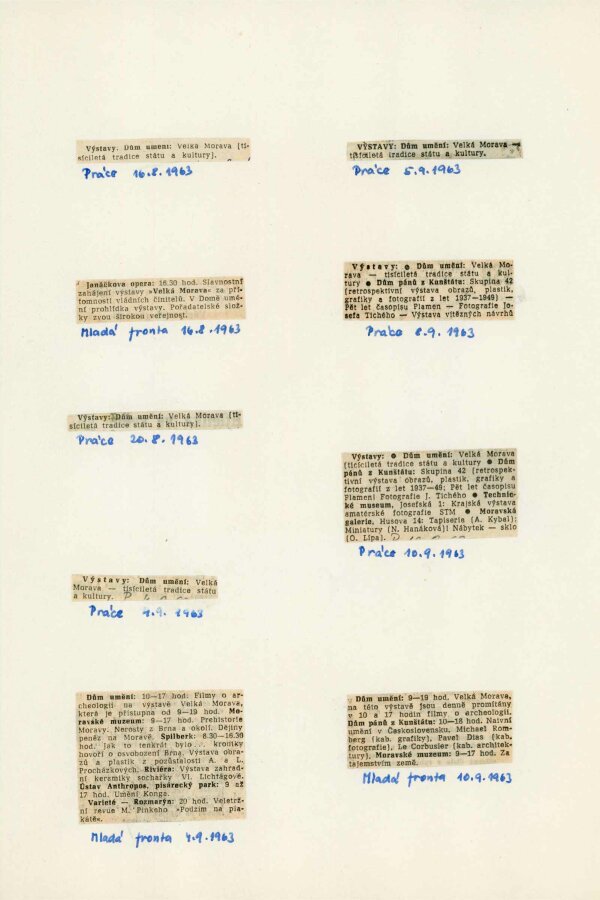 Výstavy. Dům umění: Velká Morava (ti-
síciletá tradice státu a kultury).
Práce 16.8.1963
Janáčkova opera: 16.30 hod. Slavnostní
zahájení výstavy »Velká Morava« za pří-
tomnosti vládních činitelů. V Domě umě-
ní prohlídka výstavy. Pořadatelské slož-
ky zvou širokou veřejnost.
Mladá fronta 16.8.1963
Výstavy: Dům umění: Velká Morava (ti-
síciletá tradice státu a kultury).
Práce 20.8.1963
Výstavy: Dům umění: Velká
Morava — tisíciletá tradice státu
a kultury.
Práce 4.9.1963
Dům umění: 10—17 hod. Filmy o ar-
cheologii na výstavě Velká Morava,
která je přístupna od 9—19 hod. Mo-
ravské muzeum: 9—17 hod. Prehistorie
Moravy. Nerosty z Brna a okolí. Dějiny
peněz na Moravě. Špilberk: 8.30—16.30
hod. Jak to tenkrát bylo... kroniky
hovoří o osvobození Brna. Výstava obra-
zů a plastik z pozůstalosti A. a L.
Procházkových. Riviéra: Výstava zahrad-
ní keramiky sochařky Vl. Lichtágové.
Ústav Anthropos, pisárecký park: 9 až
17 hod. Umění Konga.
Varieté — Rozmarýn: 20 hod. Veletrž-
ní revue M. Pinkeho »Podzim na pla-
kátě«.
Mladá fronta 4.9.1963
VÝSTAVY: Dům umění: Velká Morava —
tisíciletá tradice státu a kultury.
Práce 5.9.1963
Výstavy: ● Dům umění: Velká Mo-
rava — tisíciletá tradice státu a kul-
tury ● Dům pánů z Kunštátu: Skupina 42
(retrospektivní výstava obrazů, plastik,
grafiky a fotografií z let 1937—1949) —
Pět let časopisu Plamen — Fotografie Jo-
sefa Tichého — Výstava vítězných návrhů
Práce 8.9.1963
Výstavy: ● Dům umění: Velká Morava
(tisíciletá tradice státu a kultury ● Dům
pánů z Kunštátu: Skupina 42 (retrospek-
tivní výstava obrazů, plastik, grafiky a
fotografií z let 1937—49; Pět let časopisu
Plamen; Fotografie J. Tichého ● Technic-
ké museum, Josefská 1: Krajská výstava
amatérské fotografie STM ● Moravská
galerie, Husova 14: Tapiserie (A. Kybal);
Miniatury (N. Hanáková); Nábytek — sklo
(O. Lípa).
Práce 10.9.1963
Dům umění: 9—19 hod. Velká Morava,
na této výstavě jsou denně promítány
v 10 a 17 hodin filmy o archeologii.
Dům pánů z Kunštátu: 10—18 hod. Naivní
umění v Československu, Michael Rom-
berg (kab. grafiky), Pavel Dias (kab.
fotografie), Le Corbusier (kab. architek-
tury). Moravské muzeum: 9—17 hod. Za
tajemstvím země.
Mladá fronta 10.9.1963